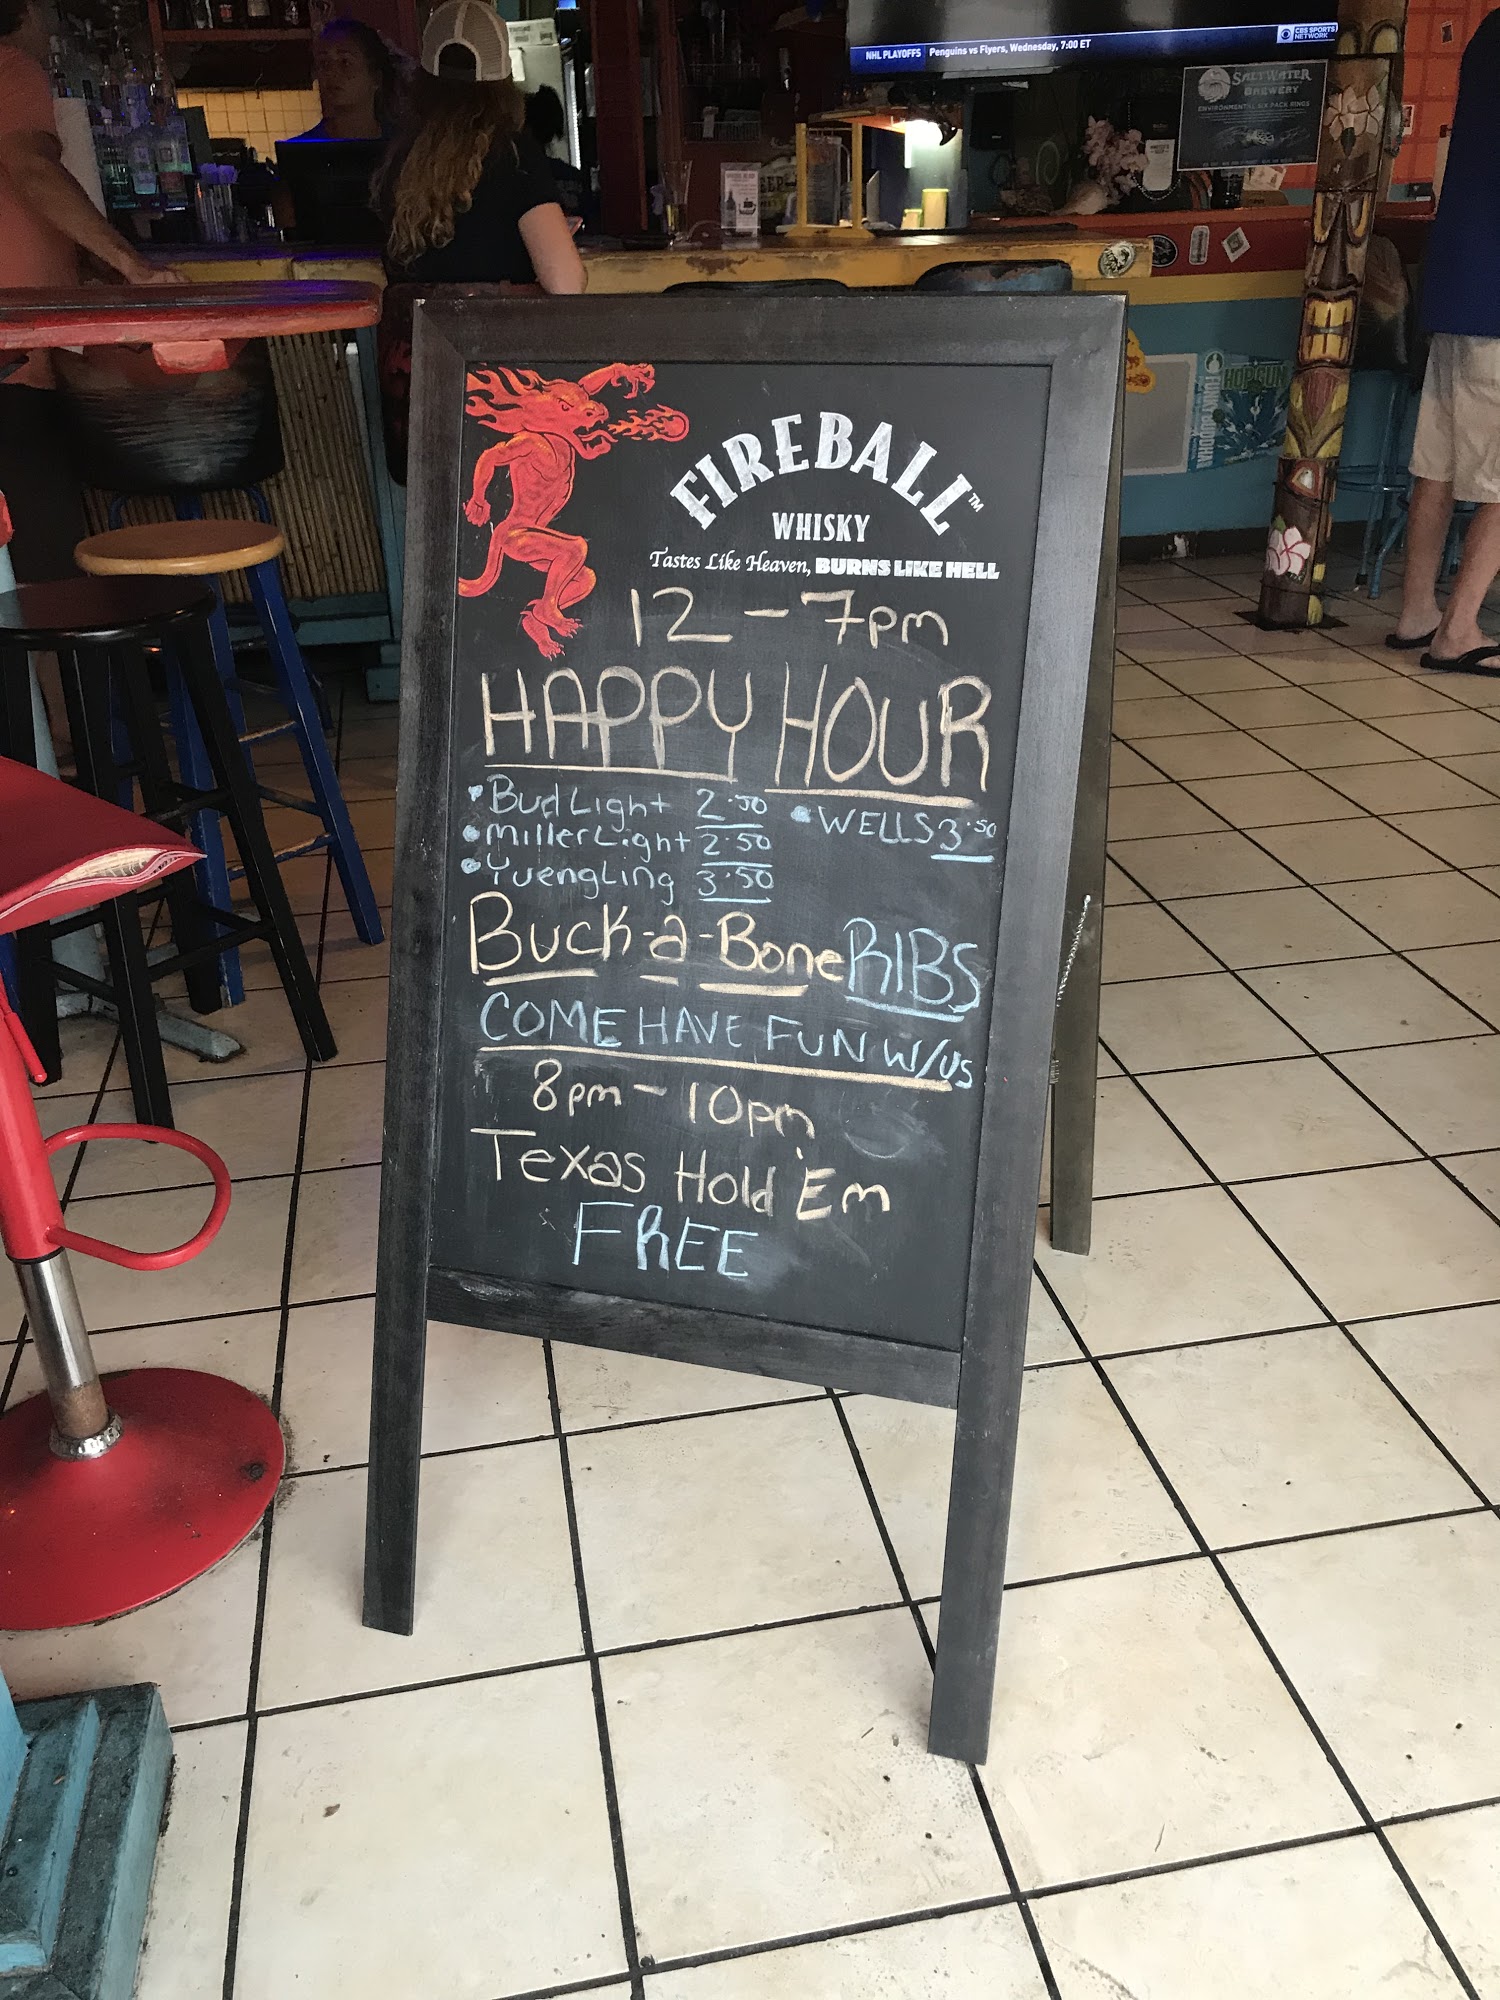 NHL PLAYOFFS Penguins vs Flyers, Wednesday, 7:00 ET
CBS SPORTS
NETWORK
SALTWATER
BREWERY
ENVIRONMENTAL SIX PACK RINGS
HOP GUN
FUNKY BUDDHA
FIREBALL™
WHISKY
Tastes Like Heaven, BURNS LIKE HELL
12 - 7pm
HAPPY HOUR
• Bud Light 2.50
• Miller Light 2.50
• Yuengling 3.50
• WELLS 3.50
Buck-a-Bone RIBS
COME HAVE FUN W/US
8pm - 10pm
Texas Hold 'Em
FREE